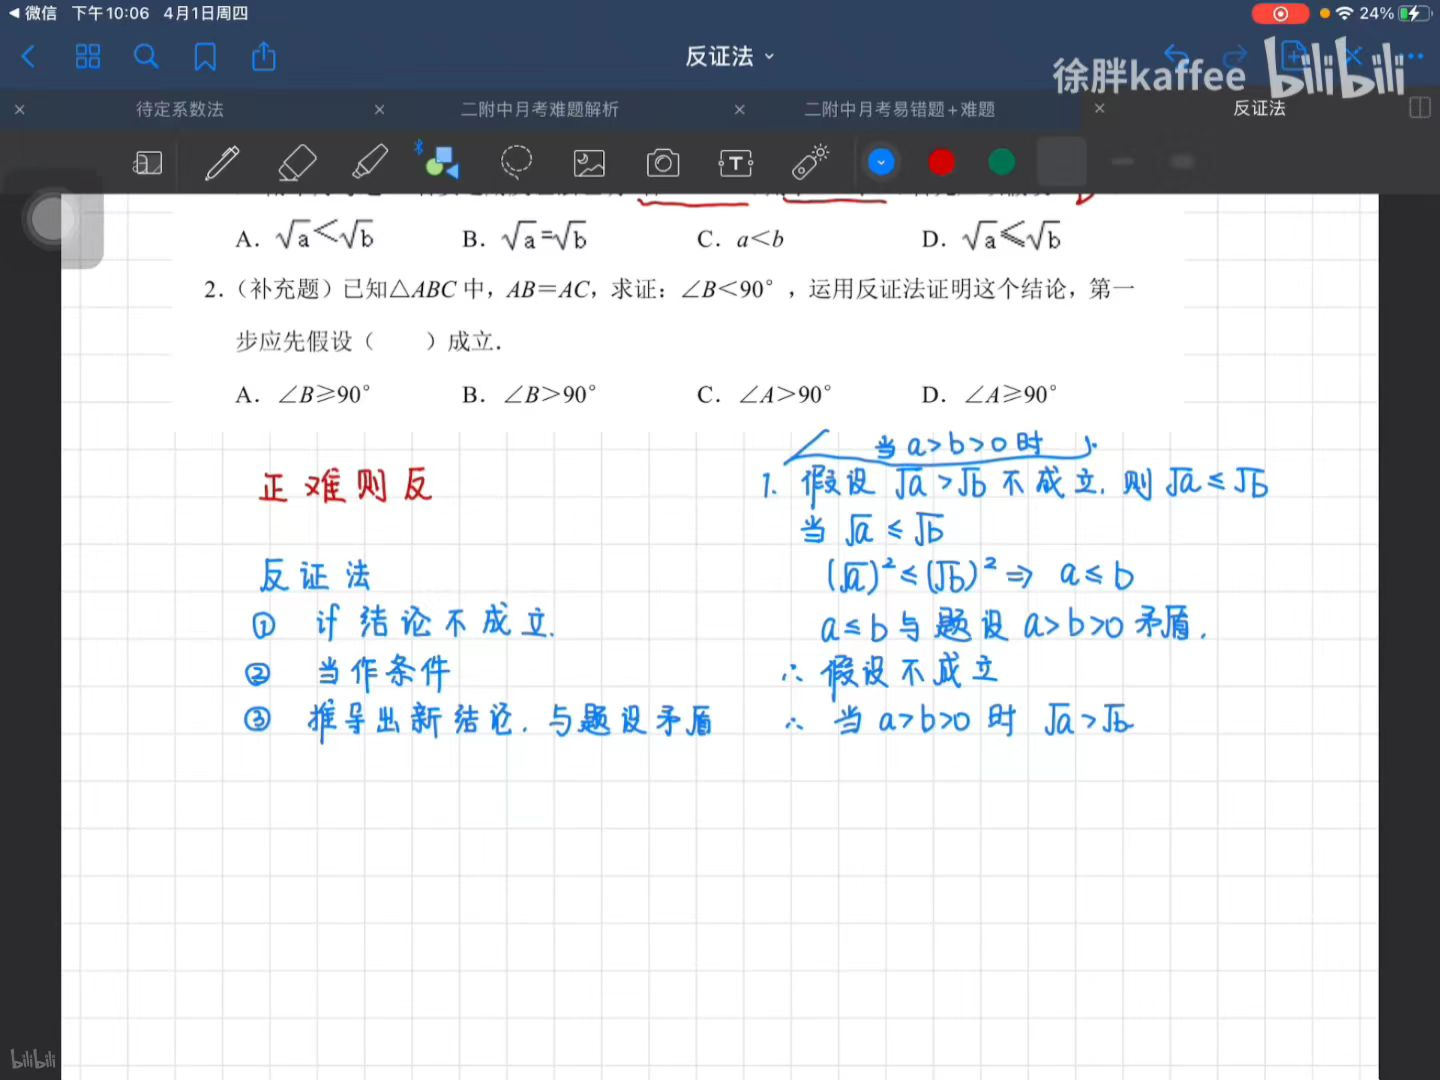 微信 下午10:06 4月1日周四
24%
反证法
徐胖kaffee bilibili
待定系数法
二附中月考难题解析
二附中月考易错题+难题
反证法
A. √a<√b B. √a=√b C. a<b D. √a⩽√b
2.(补充题)已知△ABC 中,AB=AC,求证:∠B<90°,运用反证法证明这个结论,第一
步应先假设( )成立.
A. ∠B≥90° B. ∠B>90° C. ∠A>90° D. ∠A≥90°
正难则反
反证法
① 讠结论不成立.
② 当作条件
③ 推导出新结论.与题设矛盾
当 a>b>0 时
1. 假设 √a>√b 不成立.则 √a≤√b
当 √a≤√b
(√a)²≤(√b)²⇒ a≤b
a≤b与题设 a>b>0 矛盾.
∴ 假设不成立
∴ 当 a>b>0 时 √a>√b
bilibili